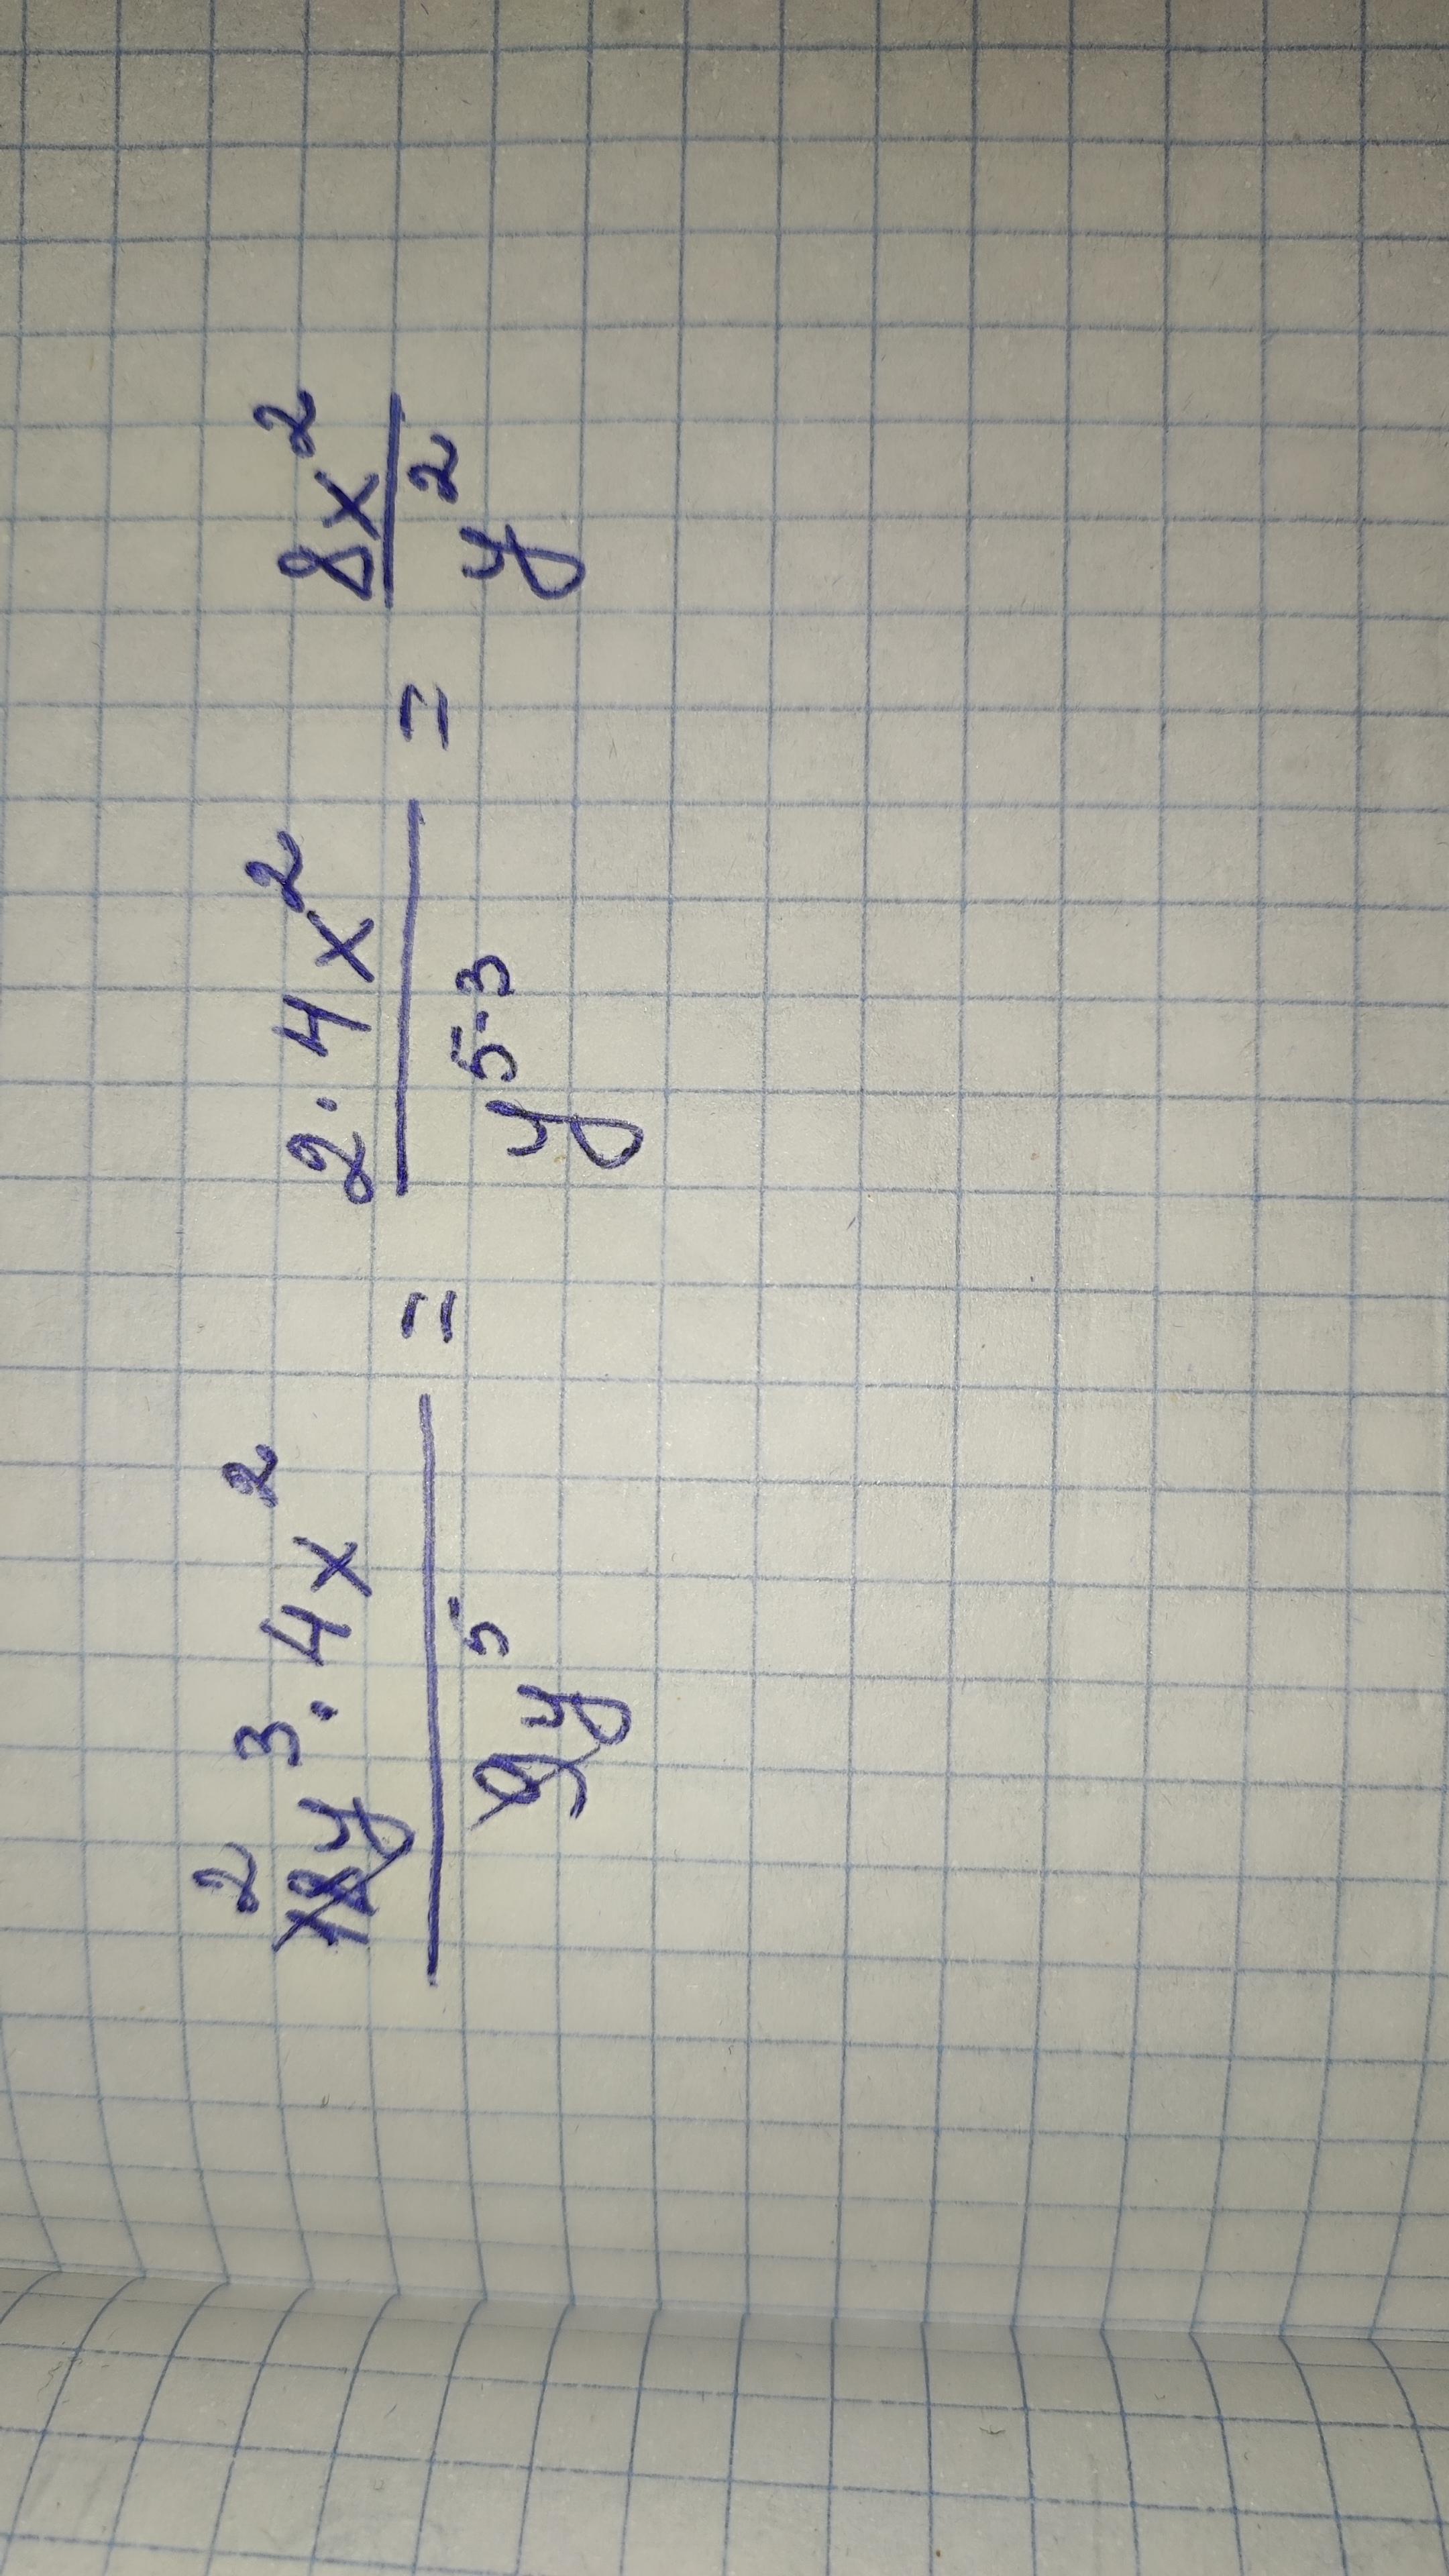 2
18y³ · 4x² / 9y⁵ = 2 · 4x² / y⁵⁻³ = 8x² / y²